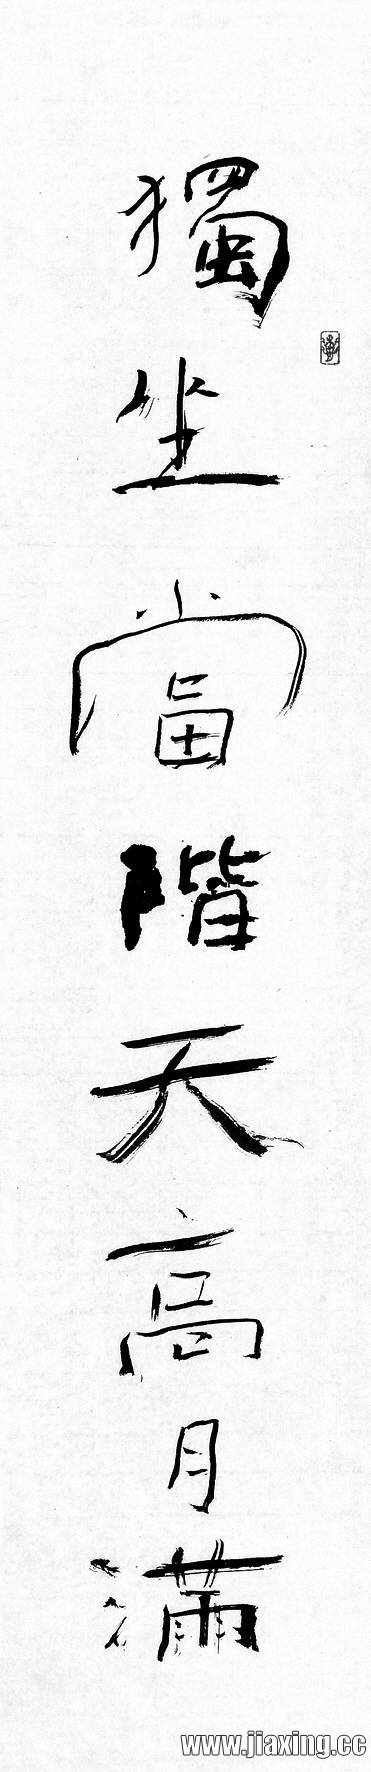 獨坐當階天高月滿
www.jiaxing.cc